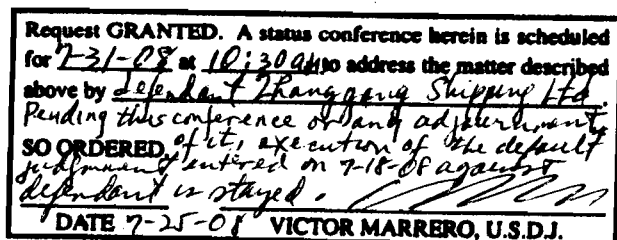 Request GRANTED. A status conference herein is scheduled
for 7-31-08 at 10:30 am to address the matter described
above by defendant Zhanggang Shipping Ltd.
Pending this conference or any adjournment
SO ORDERED. of it, execution of the default
judgment entered on 7-18-08 against
defendant is stayed.
DATE 7-25-08 VICTOR MARRERO, U.S.D.J.